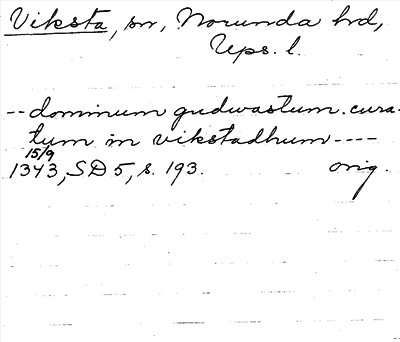 Viksta, sn, Norunda hd,
Ups. l.
--dominum gudwastum.cura-
tum in vikstadhum----
15/9
1343, SD 5, s. 193. orig.